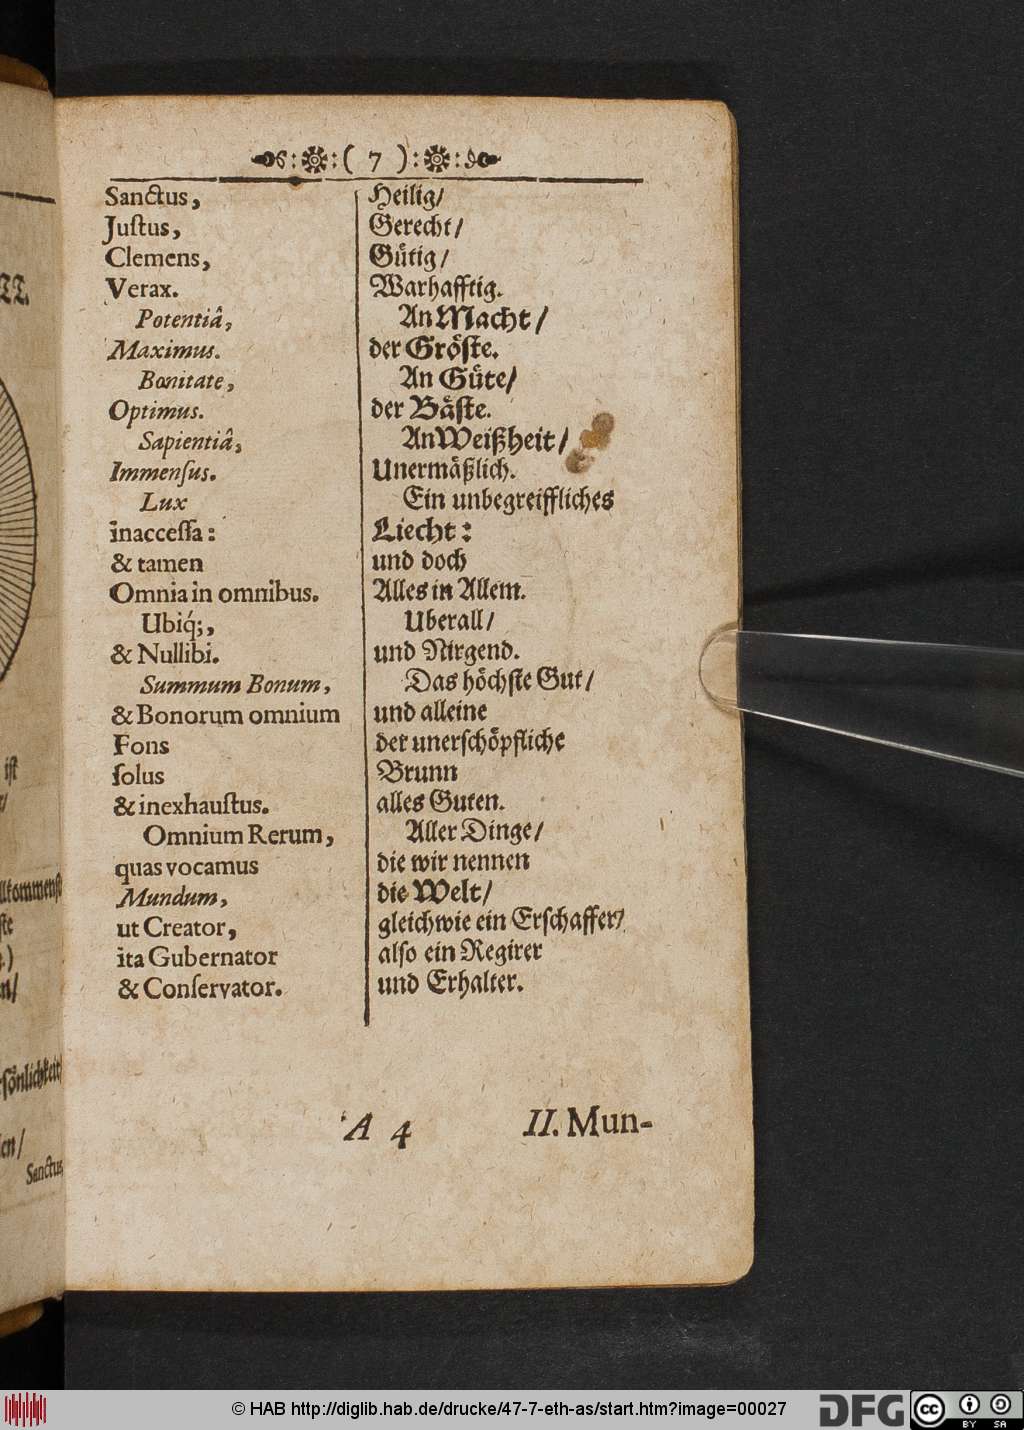 ( 7 )
Sanctus,
Juſtus,
Clemens,
Verax.
Potentiâ,
Maximus.
Bonitate,
Optimus.
Sapientiâ,
Immenſus.
Lux
inacceſſa:
& tamen
Omnia in omnibus.
Ubiq́;,
& Nullibi.
Summum Bonum,
& Bonorum omnium
Fons
ſolus
& inexhauſtus.
Omnium Rerum,
quas vocamus
Mundum,
ut Creator,
ita Gubernator
& Conſervator.
Heilig/
Gerecht/
Guͤtig/
Warhafftig.
An Macht/
der Groͤſte.
An Guͤte/
der Baͤſte.
An Weißheit/
Unermaͤßlich.
Ein unbegreiffliches
Liecht:
und doch
Alles in Allem.
Uberall/
und Nirgend.
Das hoͤchſte Gut/
und alleine
der unerſchoͤpfliche
Brunn
alles Guten.
Aller Dinge/
die wir nennen
die Welt/
gleichwie ein Erſchaffer/
alſo ein Regirer
und Erhalter.
A 4 II. Mun-
Sanctus
© HAB http://diglib.hab.de/drucke/47-7-eth-as/start.htm?image=00027
DFG
cc BY SA